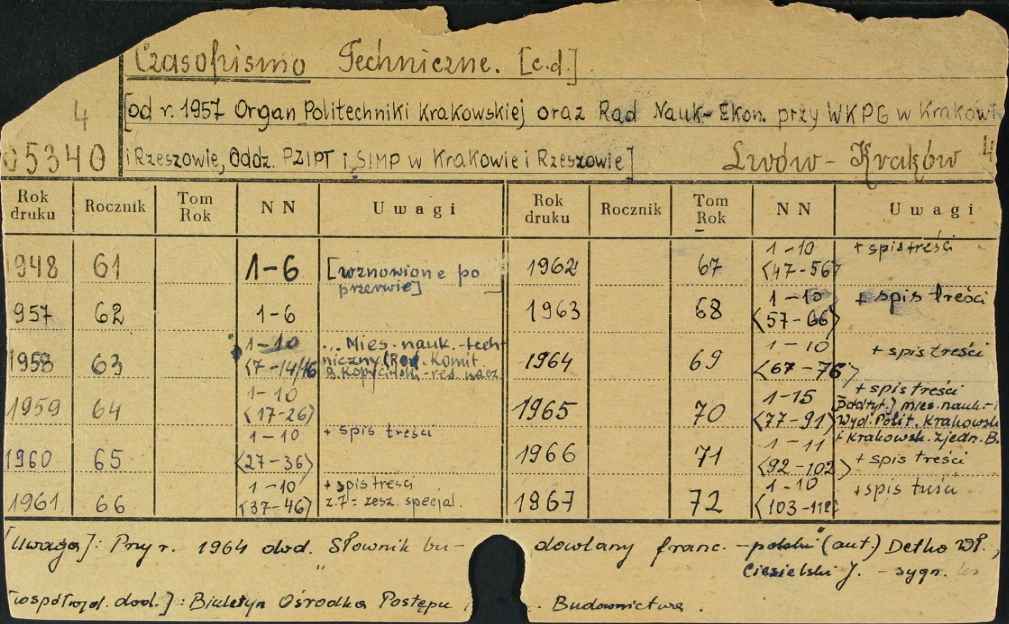 Czasopismo Techniczne. [c.d.]
4
[od r. 1957 Organ Politechniki Krakowskiej oraz Rad Nauk-Ekon. przy WKPG w Krakowie
05340
i Rzeszowie, Oddz. PZIPT i SIMP w Krakowie i Rzeszowie] Lwów - Kraków 4
Rok druku Rocznik Tom Rok NN Uwagi Rok druku Rocznik Tom Rok NN Uwagi
1948 61 1-6 [wznowione po przerwie]
957 62 1-6
1958 63 1-10 <7-14/16 ... Mies. nauk.-techniczny (Red. Komit.
1959 64 1-10 <17-26>
1960 65 1-10 <27-36> + spis treści
1961 66 1-10 <37-46> + spis treści z.7 = zesz. specjal.
1962 67 1-10 <47-56> + spis treści
1963 68 1-10 <57-66> + spis treści
1964 69 1-10 <67-76> + spis treści
1965 70 1-15 <77-91> + spis treści mies. nauk.- Wyd. Polit. Krakowsk. + Krakowsk. zjedn. B.
1966 71 1-11 <92-102> + spis treści
1967 72 1-10 <103-112> + spis treści
[Uwaga]: Przy r. 1964 dod. Słownik budowlany franc.-polski (aut.) Detko Wł.,
Ciesielski J. - sygn.
[współwyd. dod.]: Biuletyn Ośrodka Postępu Budownictwa.